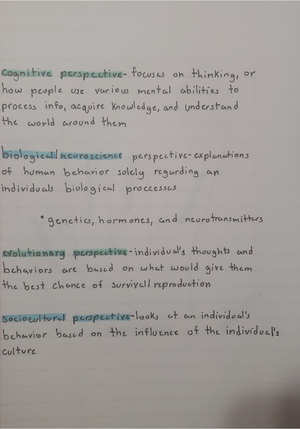 cognitive perspective- focuses on thinking, or
how people use various mental abilities to
process info, acquire knowledge, and understand
the world around them
biological/neuroscience perspective-explanations
of human behavior solely regarding an
individuals biological proccesses
*genetics, hormones, and neurotransmitters
evolutionary perspective-individual's thoughts and
behaviors are based on what would give them
the best chance of survival/reproduction
sociocultural perspective-looks at an individual's
behavior based on the influence of the individual's
culture